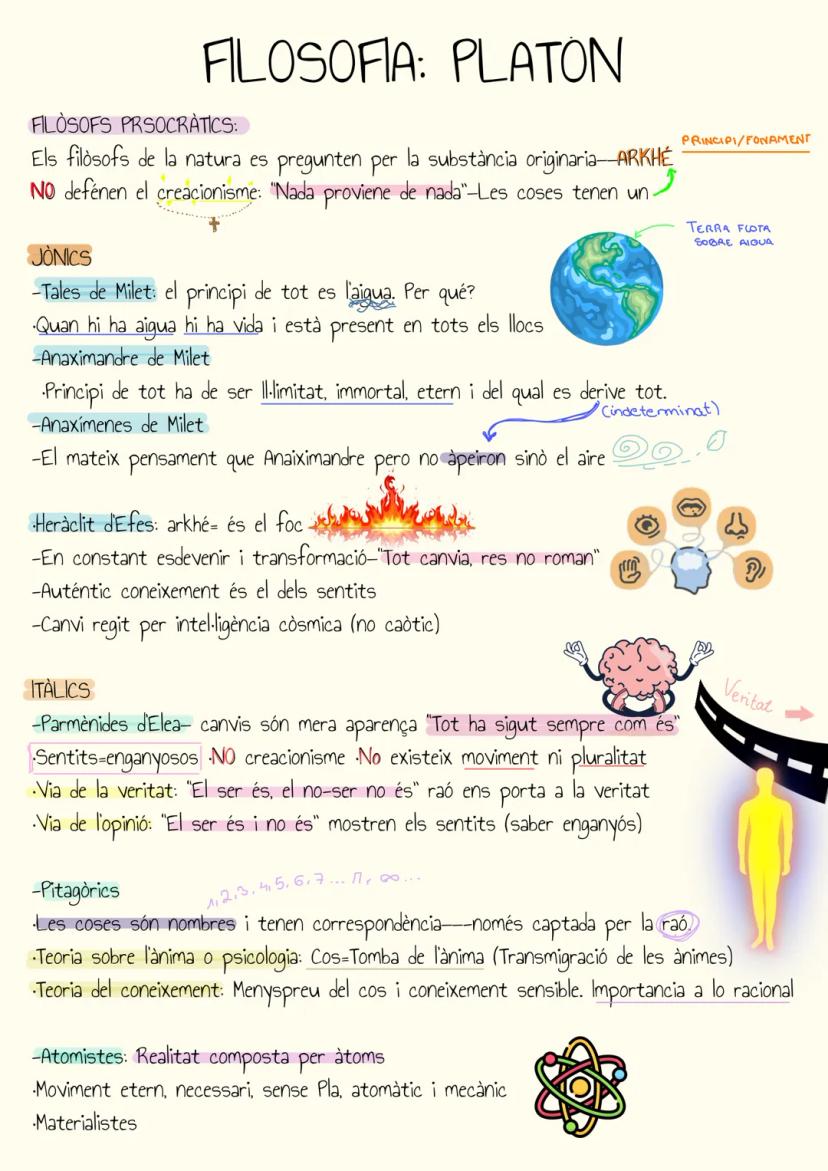 FILOSOFIA: PLATÓN
FILÒSOFS PRSOCRÀTICS:
PRINCIPI/FONAMENT
Els filòsofs de la natura es pregunten per la substància originaria—ARKHÉ
NO defénen el creacionisme: "Nada proviene de nada"-Les coses tenen un
TERRA FLOTA
SOBRE AIGUA
JÒNICS
-Tales de Milet: el principi de tot es l'aigua. Per què?
·Quan hi ha aigua hi ha vida i està present en tots els llocs
-Anaximandre de Milet
·Principi de tot ha de ser il·limitat, immortal, etern i del qual es derive tot.
(indeterminat)
-Anaxímenes de Milet
-El mateix pensament que Anaiximandre pero no àpeiron sinò el aire
·Heràclit d'Efes: arkhé= és el foc
-En constant esdevenir i transformació-"Tot canvia, res no roman"
-Auténtic coneixement és el dels sentits
-Canvi regit per intel·ligència còsmica (no caòtic)
ITÀLICS
Veritat
-Parmènides d'Elea- canvis són mera aparença "Tot ha sigut sempre com és"
·Sentits=enganyosos ·NO creacionisme ·No existeix moviment ni pluralitat
·Via de la veritat: "El ser és, el no-ser no és" raó ens porta a la veritat
·Via de l'opinió: "El ser és i no és" mostren els sentits (saber enganyós)
-Pitagòrics
1,2,3,4,5,6,7... π, ∞...
·Les coses són nombres i tenen correspondència---només captada per la raó.
·Teoria sobre l'ànima o psicologia: Cos=Tomba de l'ànima (Transmigració de les ànimes)
·Teoria del coneixement: Menyspreu del cos i coneixement sensible. Importancia a lo racional
-Atomistes: Realitat composta per àtoms
·Moviment etern, necessari, sense Pla, atomàtic i mecànic
·Materialistes